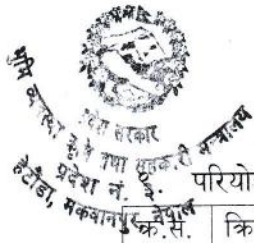 प्रदेश सरकार
भूमि व्यवस्था कृषि तथा सहकारी मन्त्रालय
प्रदेश नं. ३.
हेटौंडा, मकवानपुर, नेपाल
परियो
क्र.सं. क्रि